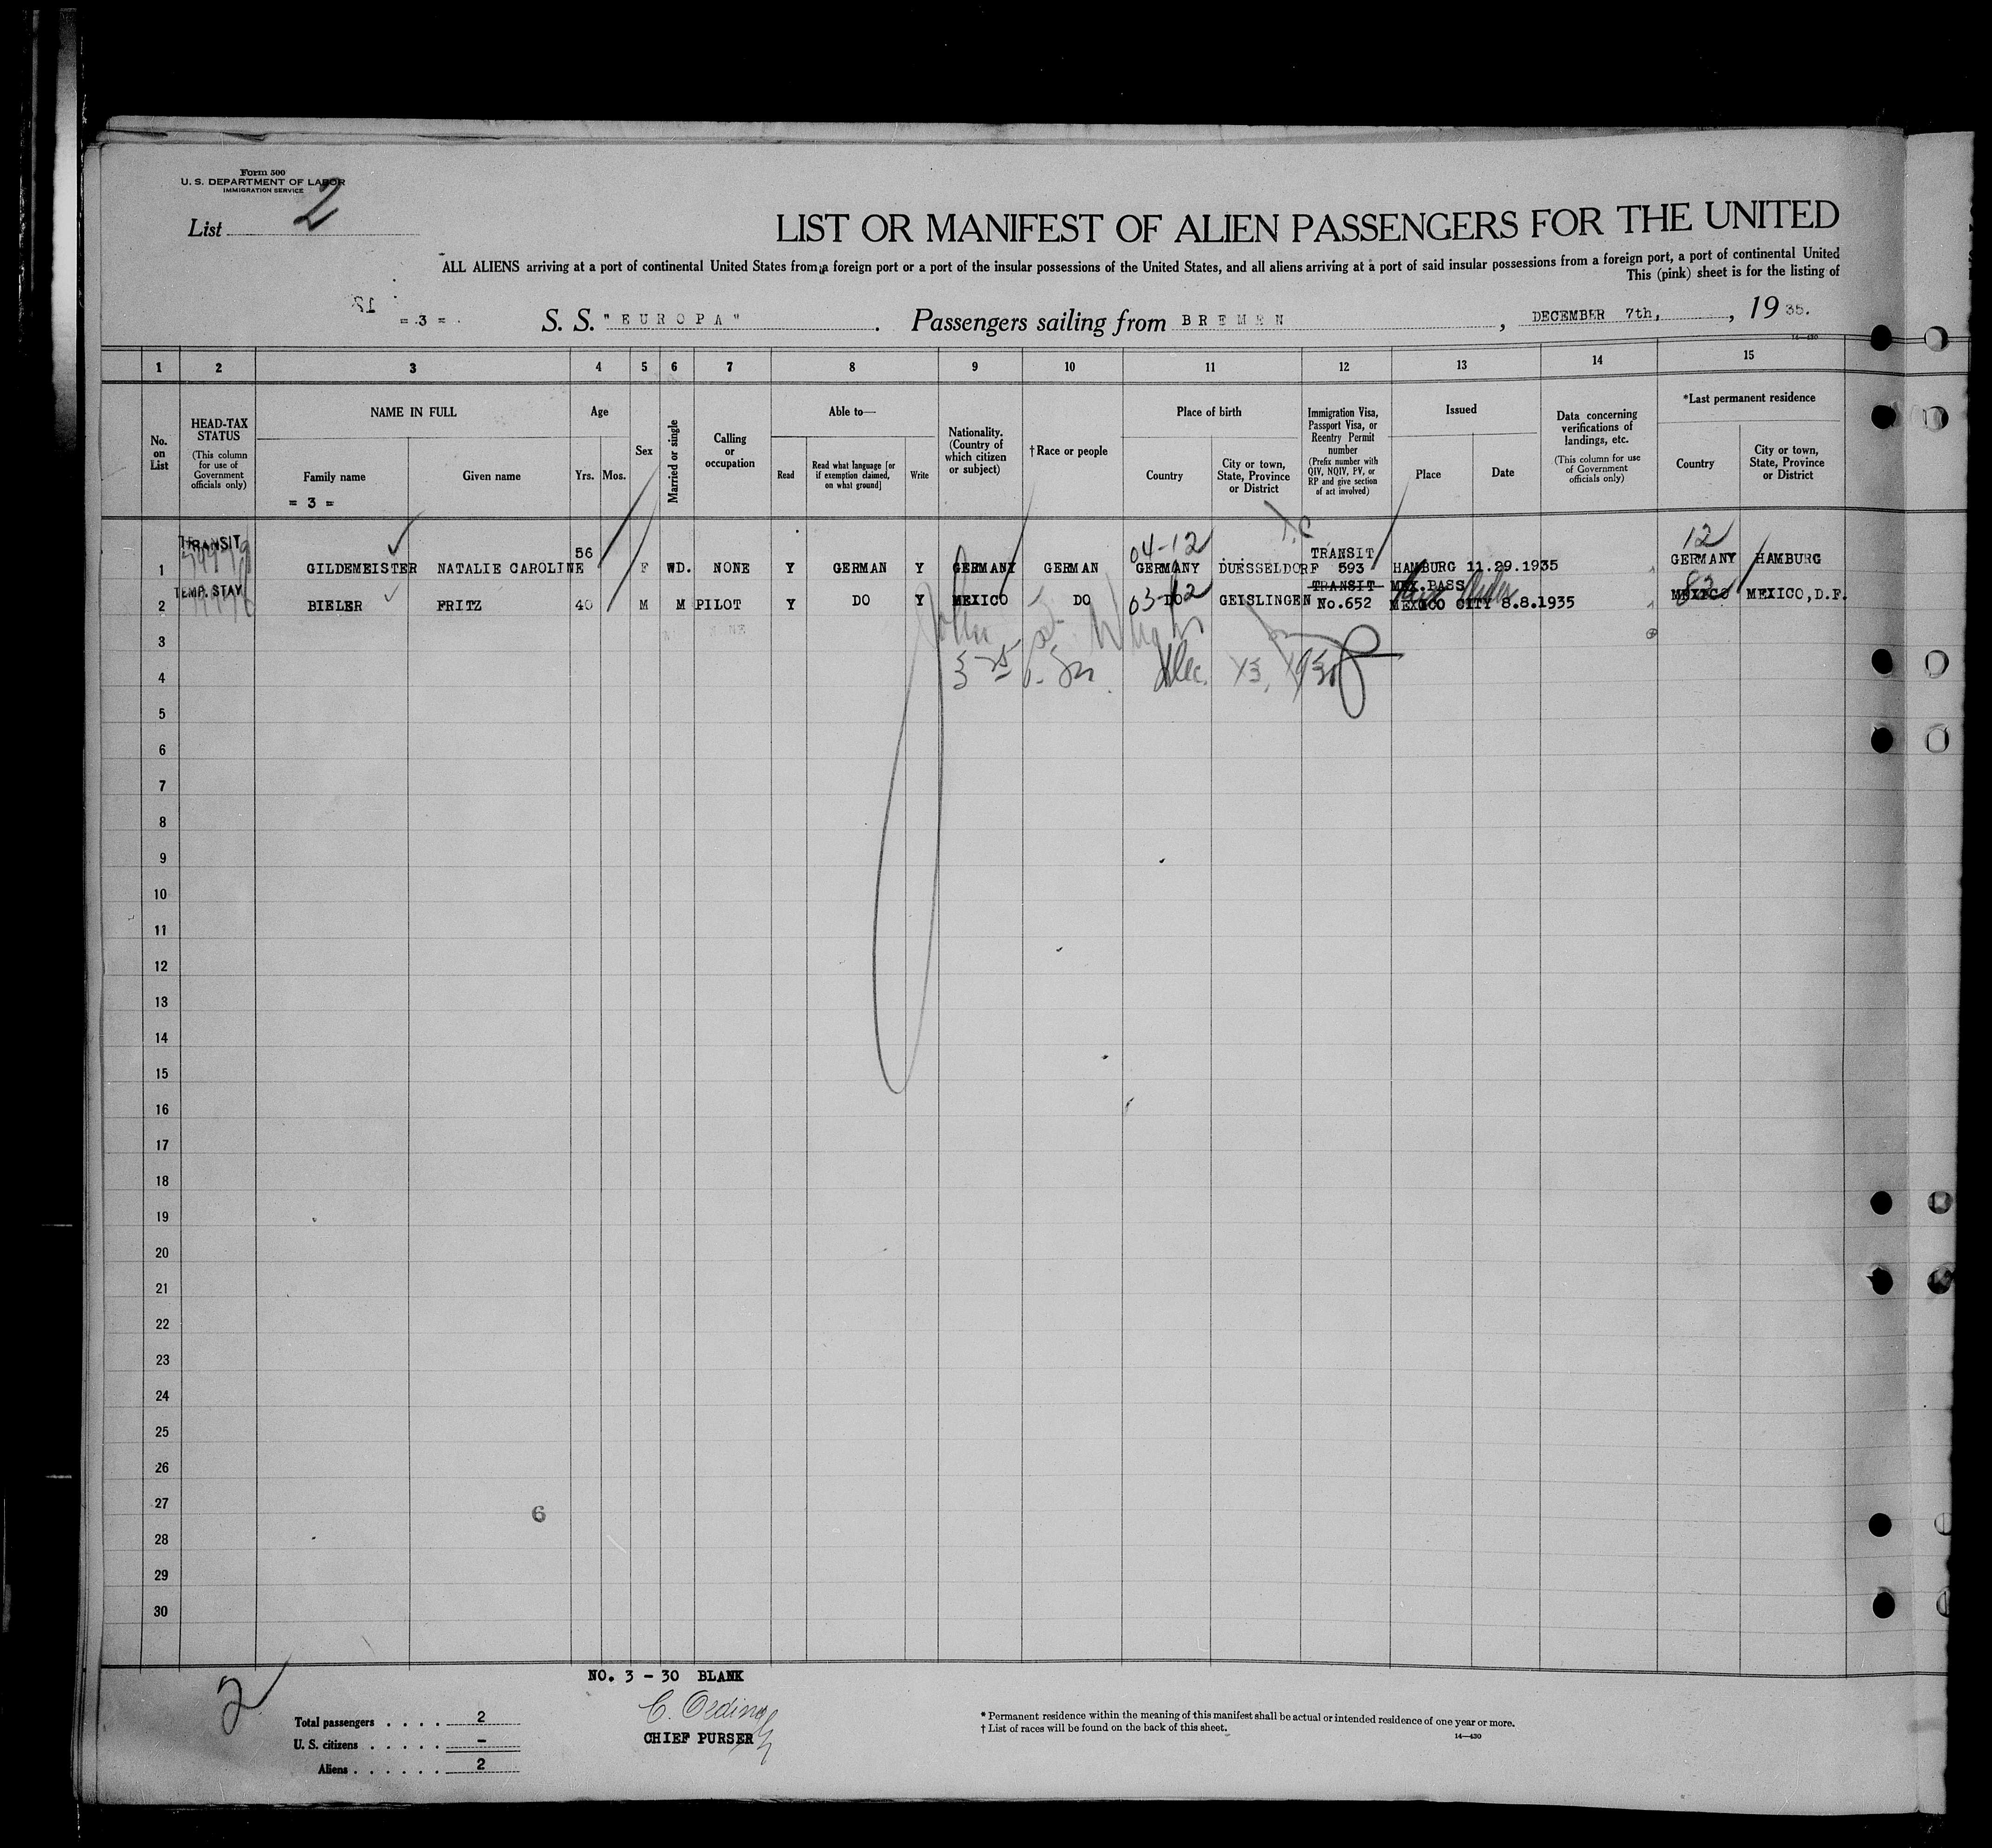 Form 500
U. S. DEPARTMENT OF LABOR
IMMIGRATION SERVICE
List 2
LIST OR MANIFEST OF ALIEN PASSENGERS FOR THE UNITED
ALL ALIENS arriving at a port of continental United States from a foreign port or a port of the insular possessions of the United States, and all aliens arriving at a port of said insular possessions from a foreign port, a port of continental United
This (pink) sheet is for the listing of
= 3 =
S. S. "EUROPA" . Passengers sailing from BREMEN , DECEMBER 7th, , 1935.
14—430
1 2 3 4 5 6 7 8 9 10 11 12 13 14 15
No. on List
HEAD-TAX STATUS
(This column for use of Government officials only)
NAME IN FULL
Family name
= 3 =
Given name
Age
Yrs. Mos.
Sex
Married or single
Calling or occupation
Able to—
Read
Read what language [or if exemption claimed, on what ground]
Write
Nationality. (Country of which citizen or subject)
† Race or people
Place of birth
Country
City or town, State, Province or District
Immigration Visa, Passport Visa, or Reentry Permit number
(Prefix number with QIV, NQIV, PV, or RP and give section of act involved)
Issued
Place
Date
Data concerning verifications of landings, etc.
(This column for use of Government officials only)
*Last permanent residence
Country
City or town, State, Province or District
TRANSIT 56 04-12 TRANSIT 12
1 GILDEMEISTER NATALIE CAROLINE F WD. NONE Y GERMAN Y GERMANY GERMAN GERMANY DUESSELDORF 593 HAMBURG 11.29.1935 GERMANY HAMBURG
TEMP. STAY 03-12 TRANSIT MEX.PASS 82
2 BIELER FRITZ 40 M M PILOT Y DO Y MEXICO DO DO GEISLINGEN No.652 MEXICO CITY 8.8.1935 MEXICO MEXICO, D.F.
3
4
5
6
7
8
9
10
11
12
13
14
15
16
17
18
19
20
21
22
23
24
25
26
27
6
28
29
30
NO. 3 - 30 BLANK
2
Total passengers . . . . 2
U. S. citizens . . . . . -
Aliens . . . . . . 2
CHIEF PURSER
* Permanent residence within the meaning of this manifest shall be actual or intended residence of one year or more.
† List of races will be found on the back of this sheet.
14—430